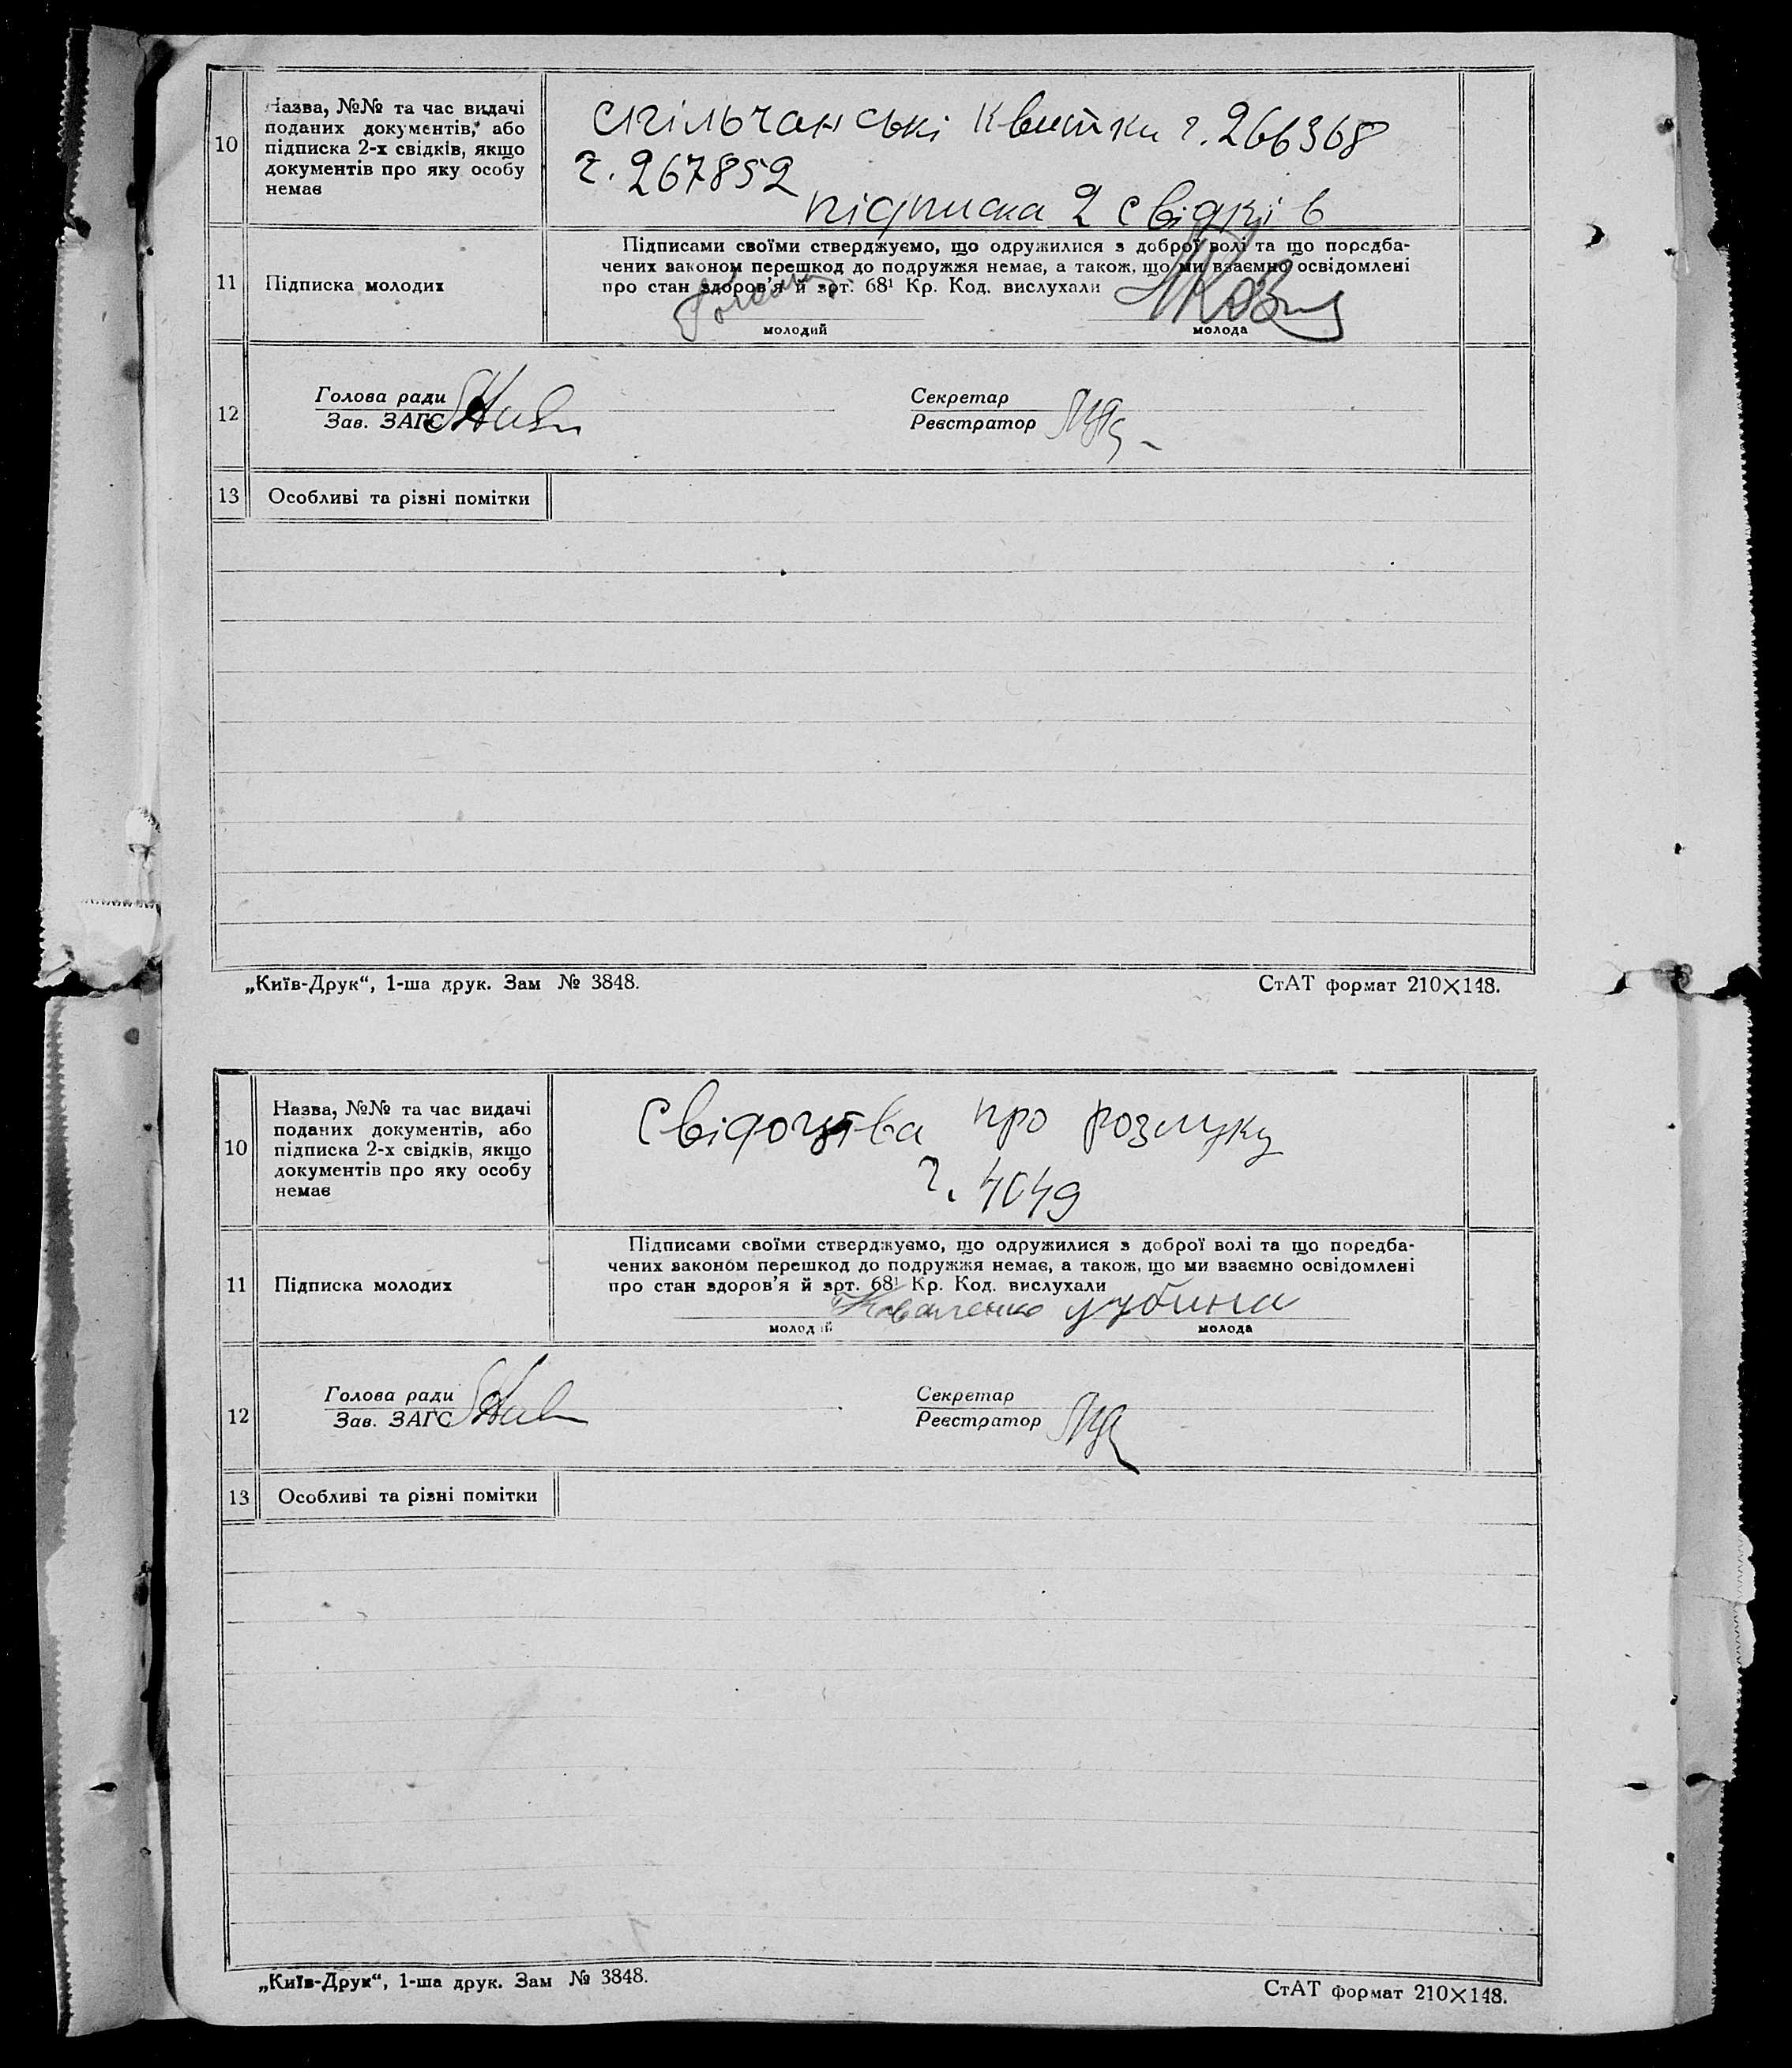 10
Назва, №№ та час видачі
поданих документів, або
підписка 2-х свідків, якщо
документів про яку особу
немає
спільчанські квитки ч. 266368
ч. 267852
підписка 2 свідків
11
Підписка молодих
Підписами своїми стверджуємо, що одружилися з доброї волі та що поредба-
чених законом перешкод до подружжя немає, а також, що ми взаємно освідомлені
про стан здоров'я й арт. 68¹ Кр. Код. вислухали
молодий
молода
12
Голова ради
Зав. ЗАГС
Секретар
Реєстратор
13
Особливі та різні помітки
„Київ-Друк“, 1-ша друк. Зам № 3848.
СтАТ формат 210×148.
10
Назва, №№ та час видачі
поданих документів, або
підписка 2-х свідків, якщо
документів про яку особу
немає
Свідоцтва про розлуку
ч. 4049
11
Підписка молодих
Підписами своїми стверджуємо, що одружилися з доброї волі та що поредба-
чених законом перешкод до подружжя немає, а також, що ми взаємно освідомлені
про стан здоров'я й арт. 68¹ Кр. Код. вислухали
Коваленко
молодий
молода
12
Голова ради
Зав. ЗАГС
Секретар
Реєстратор
13
Особливі та різні помітки
„Київ-Друк“, 1-ша друк. Зам № 3848.
СтАТ формат 210×148.